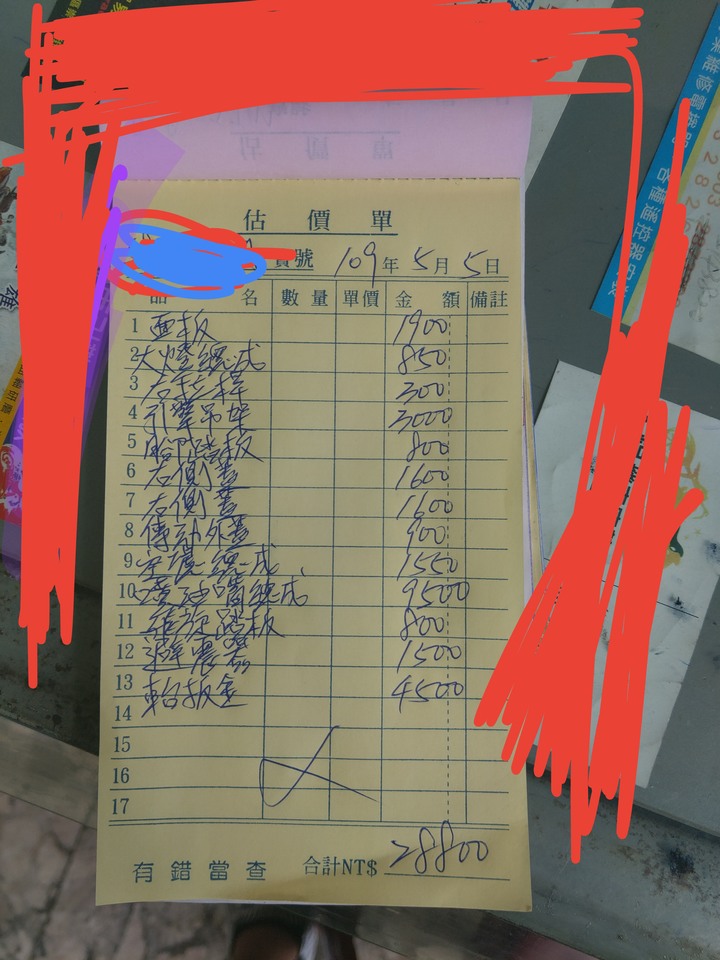 估價單
貴號 109年5月5日
品名 數量 單價 金額 備註
1 面板 1900
2 大燈總成 850
3 右拉桿 300
4 引擎吊架 3000
5 踏板 800
6 右側蓋 1600
7 左側蓋 1600
8 傳動外蓋 900
9 空濾總成 1550
10 噴油嘴總成 9500
11 踏板 800
12 避震器 1500
13 車台扳金 4500
14
15
16
17
有錯當查 合計NT$ 28800
各種遙控器